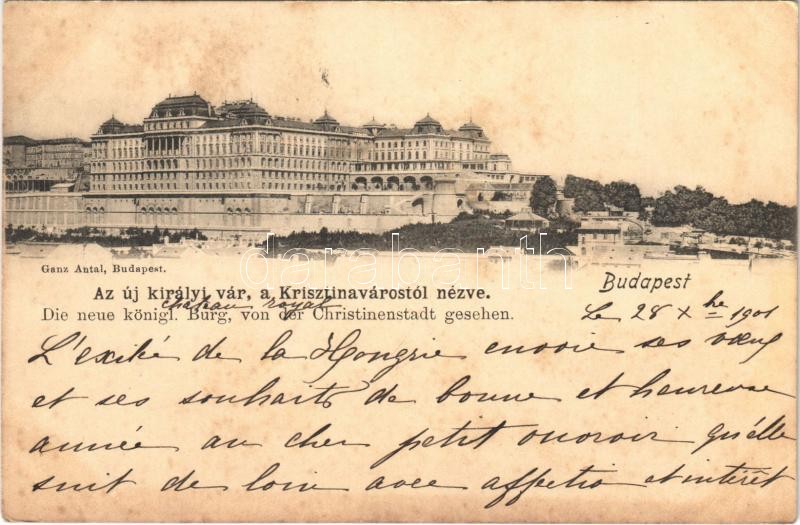 Ganz Antal, Budapest.
Az új királyi vár, a Krisztinavárostól nézve.
château royal
Die neue königl. Burg, von der Christinenstadt gesehen.
Budapest
Le 28 Xbre 1901
L'exilé de la Hongrie envoie ses vœux
et ses souhaits de bonne et heureuse
année au cher petit qu'elle
suit de loin avec affectio et intérêt
darabanth